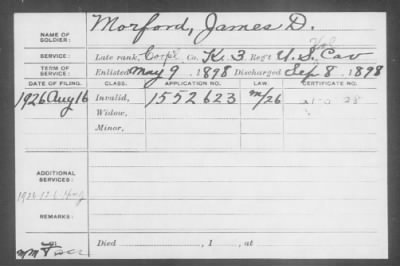 NAME OF SOLDIER: Morford, James D.
Vol
SERVICE: Late rank, Corpl Co. K, 3 Reg't U.S. Cav
TERM OF SERVICE: Enlisted May 9, 1898 Discharged Sep 8, 1898
DATE OF FILING. CLASS. APPLICATION NO. LAW. CERTIFICATE NO.
1926 Aug 16 Invalid, 1552623 m/26
Widow,
Minor,
ADDITIONAL SERVICES:
REMARKS:
Died , 1 , at